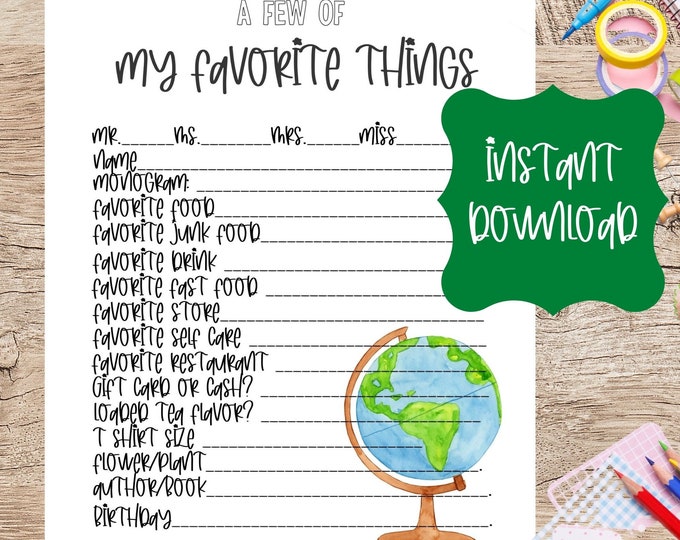 A FEW OF
MY FAVORITE THINGS
MR.______MS.________MRS.______MISS______
NAME______________________________
MONOGRAM: __________________________
FAVORITE FOOD_______________________
FAVORITE JUNK FOOD___________________
FAVORITE DRINK ______________________
FAVORITE FAST FOOD __________________
FAVORITE STORE_________________________
FAVORITE SELF CARE ________________________
FAVORITE RESTAURANT ______________________
GIFT CARD OR CASH? _______________________
LOADED TEA FLAVOR? _______________________
T SHIRT SIZE ______________________
FLOWER/PLANT___________________________.
AUTHOR/BOOK____________________________.
BIRTHDAY________________________________.
INSTANT
DOWNLOAD